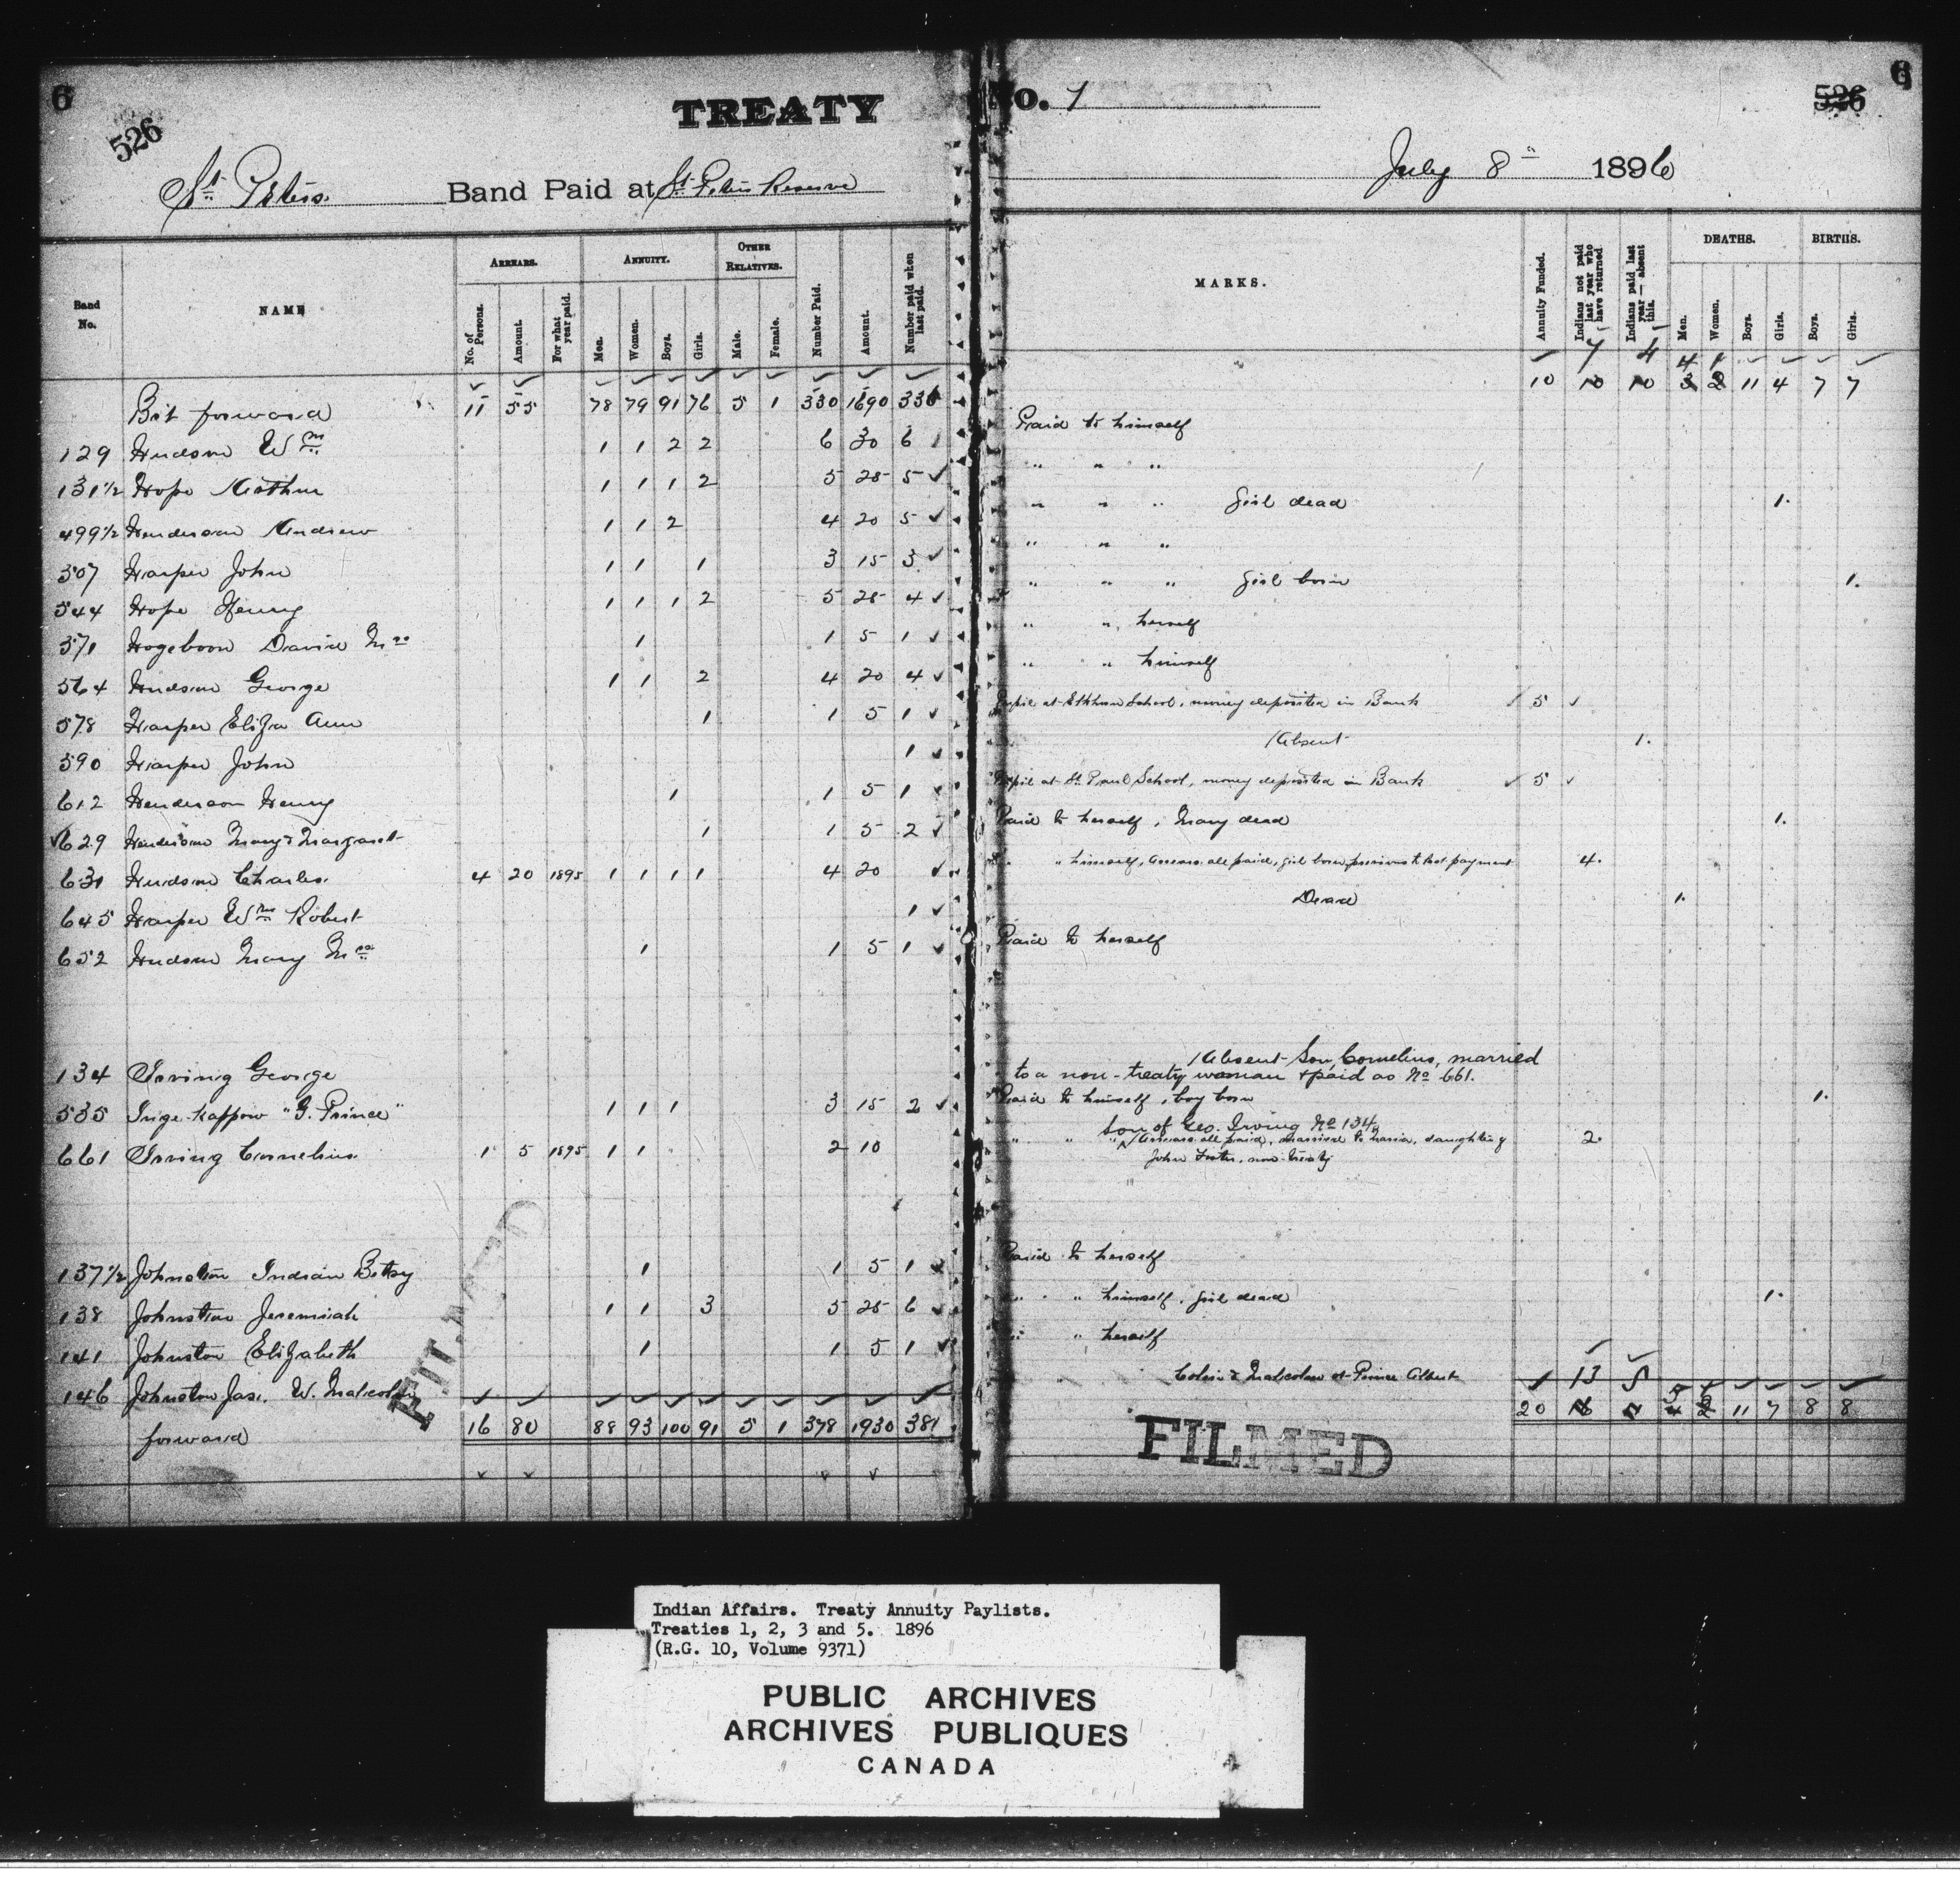 6
526
TREATY No. 1
526
6
St. Peters Band Paid at St. Peters Reserve July 8" 1896
Band No. NAME ARREARS. No. of Persons. Amount. For what year paid. ANNUITY. Men. Women. Boys. Girls. OTHER RELATIVES. Male. Female. Number Paid. Amount. Number paid when last paid. MARKS. Annuity Funded. Indians not paid last year who have returned Indians paid last year — absent this. DEATHS. Men. Women. Boys. Girls. BIRTHS. Boys. Girls.
7 4 4 1
Brt forward 11 55 78 79 91 76 5 1 330 1690 336 10 10 10 3 2 11 4 7 7
129 Hudson Wm 1 1 2 2 6 30 6 Paid to himself
131½ Hope Arthur 1 1 1 2 5 25 5 " " "
499½ Henderson Andrew 1 1 2 4 20 5 " " " Girl dead 1.
507 Harper John 1 1 1 3 15 3 " " "
544 Hope Henry 1 1 1 2 5 25 4 " " " Girl born 1.
571 Hogeboon David Mrs 1 1 5 1 " " herself
564 Hudson George 1 1 2 4 20 4 " " himself
578 Harper Eliza Ann 1 1 5 1 Pupil at Elkhorn School, money deposited in Bank 5
590 Harper John 1 Absent 1.
612 Henderson Henry 1 1 5 1 Pupil at St. Paul School, money deposited in Bank 5
629 Henderson Mary & Margaret 1 1 5 2 Paid to herself, Mary dead 1.
631 Hudson Charles. 4 20 1895 1 1 1 1 4 20 " " himself, Arrears all paid, girl born previous to last payment 4.
645 Harper Wm Robert 1 Dead 1.
652 Hudson Mary Mrs 1 1 5 1 Paid to herself
134 Irving George Absent Son, Cornelius, married
to a non-treaty woman & paid as No 661.
535 Inge-kappow "G. Prince" 1 1 1 3 15 2 Paid to himself, boy born 1.
son of Geo. Irving No 134,
661 Irving Cornelius 1 5 1895 1 1 2 10 " " " Arrears all paid, married to Maria, daughter of 2.
John Foster, non-treaty
137½ Johnston Indian Betsy 1 1 5 1 Paid to herself
138 Johnston Jeremiah 1 1 3 5 25 6 " " himself, girl dead 1.
141 Johnston Elizabeth 1 1 5 1 " " herself
146 Johnston Jas. W. Malcolm Colin & Malcolm at Prince Albert 13 5 5
forward 16 80 88 93 100 91 5 1 378 1930 381 20 16 7 4 2 11 7 8 8
FILMED
FILMED
Indian Affairs. Treaty Annuity Paylists.
Treaties 1, 2, 3 and 5. 1896
(R.G. 10, Volume 9371)
PUBLIC ARCHIVES
ARCHIVES PUBLIQUES
CANADA